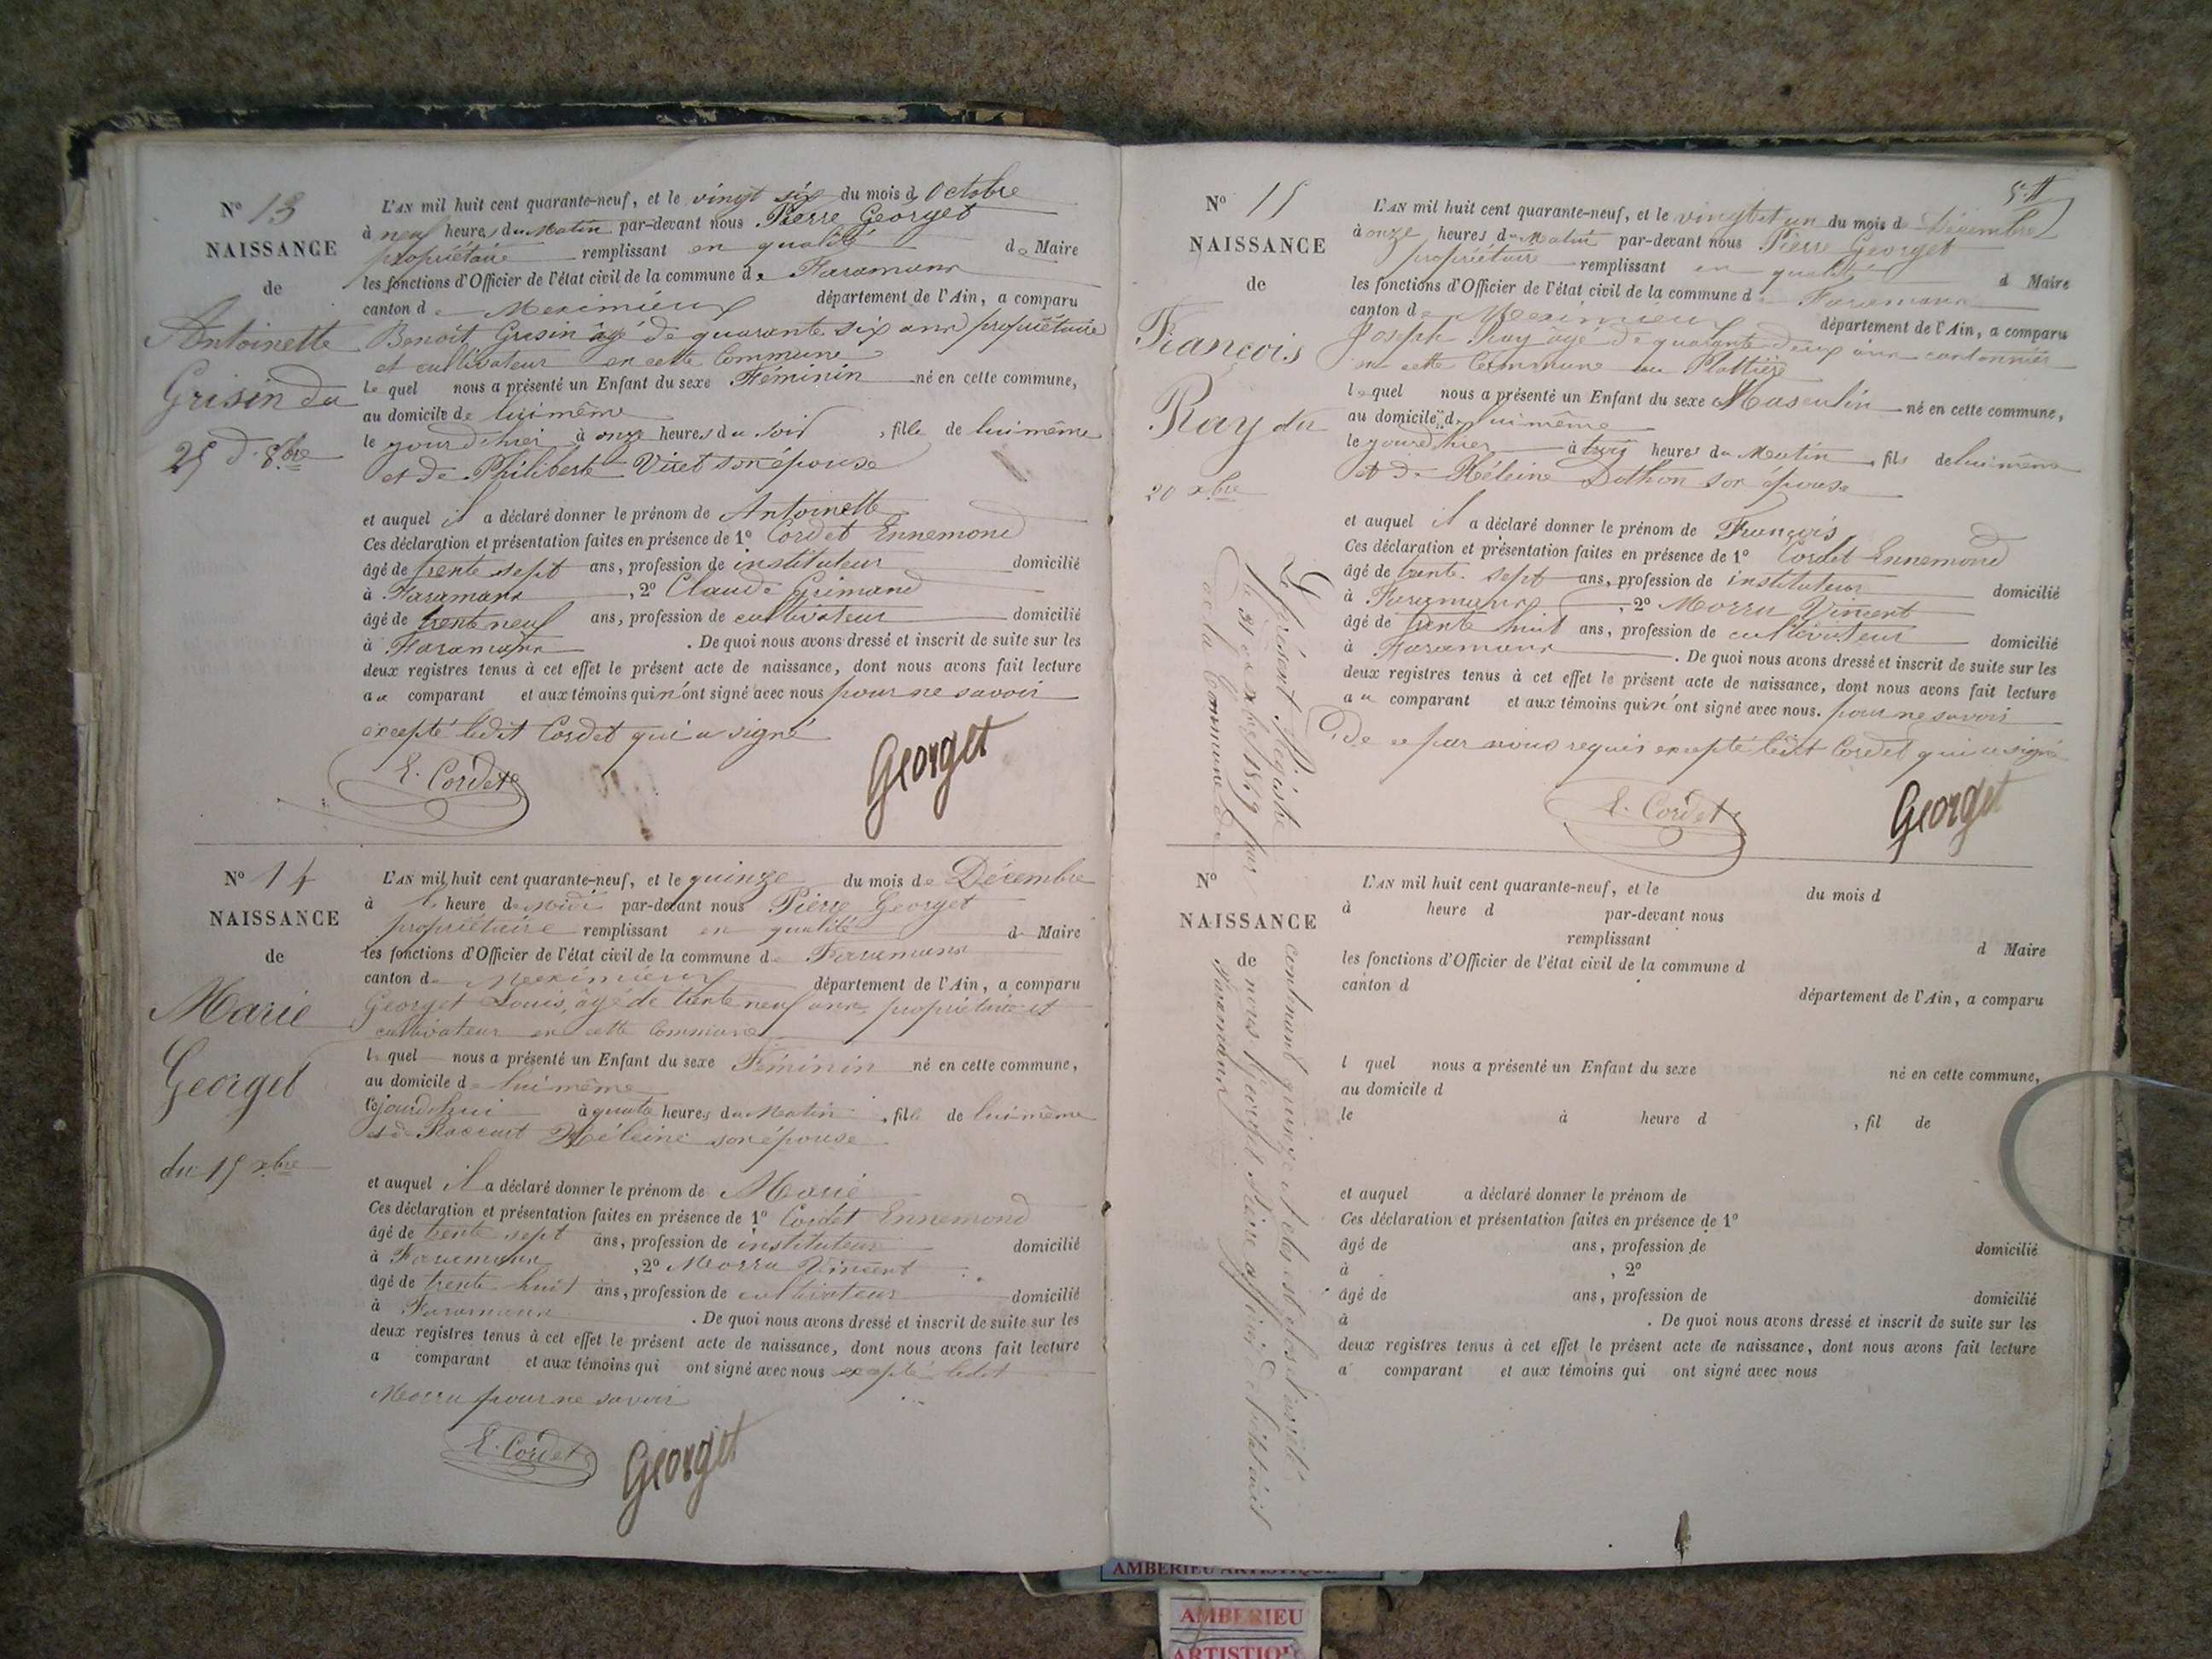 N° 13
NAISSANCE
de
Antoinette
Grisin du
25 d. 8bre
L'AN mil huit cent quarante-neuf, et le vingt six du mois d Octobre
à neuf heures du Matin par-devant nous Pierre Georget
propriétaire remplissant en qualité de Maire
les fonctions d'Officier de l'état civil de la commune de Faramans
canton de Meximieux département de l'Ain, a comparu
Benoit Grisin âgé de quarante six ans propriétaire
et cultivateur en cette Commune
le quel nous a présenté un Enfant du sexe Féminin né en cette commune,
au domicile de lui même
le jour d'hier à onze heures du soir, fille de lui même
et de Philiberte Viret son épouse
et auquel il a déclaré donner le prénom de Antoinette
Ces déclaration et présentation faites en présence de 1° Cordet Ennemond
âgé de trente sept ans, profession de instituteur domicilié
à Faramans, 2° Claude Grimand
âgé de trente neuf ans, profession de cultivateur domicilié
à Faramans. De quoi nous avons dressé et inscrit de suite sur les
deux registres tenus à cet effet le présent acte de naissance, dont nous avons fait lecture
au comparant et aux témoins qui n'ont signé avec nous pour ne savoir
excepté ledit Cordet qui a signé
E. Cordet
Georget
N° 14
NAISSANCE
de
Marie
Georget
du 15 xbre
L'AN mil huit cent quarante-neuf, et le quinze du mois de Décembre
à heure de Midi par-devant nous Pierre Georget
propriétaire remplissant en qualité de Maire
les fonctions d'Officier de l'état civil de la commune de Faramans
canton de Meximieux département de l'Ain, a comparu
Georget Louis, âgé de trente neuf ans propriétaire et
cultivateur en cette Commune
le quel nous a présenté un Enfant du sexe Féminin né en cette commune,
au domicile de lui même
le jourd'hui à quatre heures du Matin, fille de lui même
et de Raccurt Héleine son épouse
et auquel il a déclaré donner le prénom de Marie
Ces déclaration et présentation faites en présence de 1° Cordet Ennemond
âgé de trente sept ans, profession de instituteur domicilié
à Faramans, 2° Morru Vincent
âgé de trente huit ans, profession de cultivateur domicilié
à Faramans. De quoi nous avons dressé et inscrit de suite sur les
deux registres tenus à cet effet le présent acte de naissance, dont nous avons fait lecture
a comparant et aux témoins qui ont signé avec nous excepté ledit
Morru pour ne savoir
E. Cordet
Georget
N° 15
NAISSANCE
de
François
Ray du
20 xbre
L'AN mil huit cent quarante-neuf, et le vingt et un du mois de Décembre
à onze heures du Matin par-devant nous Pierre Georget
propriétaire remplissant en qualité d Maire
les fonctions d'Officier de l'état civil de la commune de Faramans
canton de Meximieux département de l'Ain, a comparu
Joseph Ray âgé de quarante deux ans cantonnier
en cette Commune au Plattiere
lequel nous a présenté un Enfant du sexe Masculin né en cette commune,
au domicile de lui même
le jour d'hier à trois heures du Matin, fils de lui même
et de Héleine Dothon son épouse
et auquel il a déclaré donner le prénom de François
Ces déclaration et présentation faites en présence de 1° Cordet Ennemond
âgé de trente sept ans, profession de instituteur domicilié
à Faramans, 2° Morru Vincent
âgé de trente huit ans, profession de cultivateur domicilié
à Faramans. De quoi nous avons dressé et inscrit de suite sur les
deux registres tenus à cet effet le présent acte de naissance, dont nous avons fait lecture
au comparant et aux témoins qui n'ont signé avec nous. pour ne savoir
De ce par nous requis excepté ledit Cordet qui a signé
E. Cordet
Georget
Le présent Registre contenant quinze actes est clos et arrêté
le 31 xbre 1849 par nous Georget Pierre officier de l'état civil
de la Commune de Faramans
N°
NAISSANCE
de
L'AN mil huit cent quarante-neuf, et le du mois d
à heure d par-devant nous
remplissant d Maire
les fonctions d'Officier de l'état civil de la commune d
canton d département de l'Ain, a comparu
l quel nous a présenté un Enfant du sexe né en cette commune,
au domicile d
le à heure d , fil de
et auquel a déclaré donner le prénom de
Ces déclaration et présentation faites en présence de 1°
âgé de ans, profession de domicilié
à , 2°
âgé de ans, profession de domicilié
à . De quoi nous avons dressé et inscrit de suite sur les
deux registres tenus à cet effet le présent acte de naissance, dont nous avons fait lecture
a comparant et aux témoins qui ont signé avec nous
AMBERIEU ARTISTIQUE
AMBERIEU
ARTISTIQU